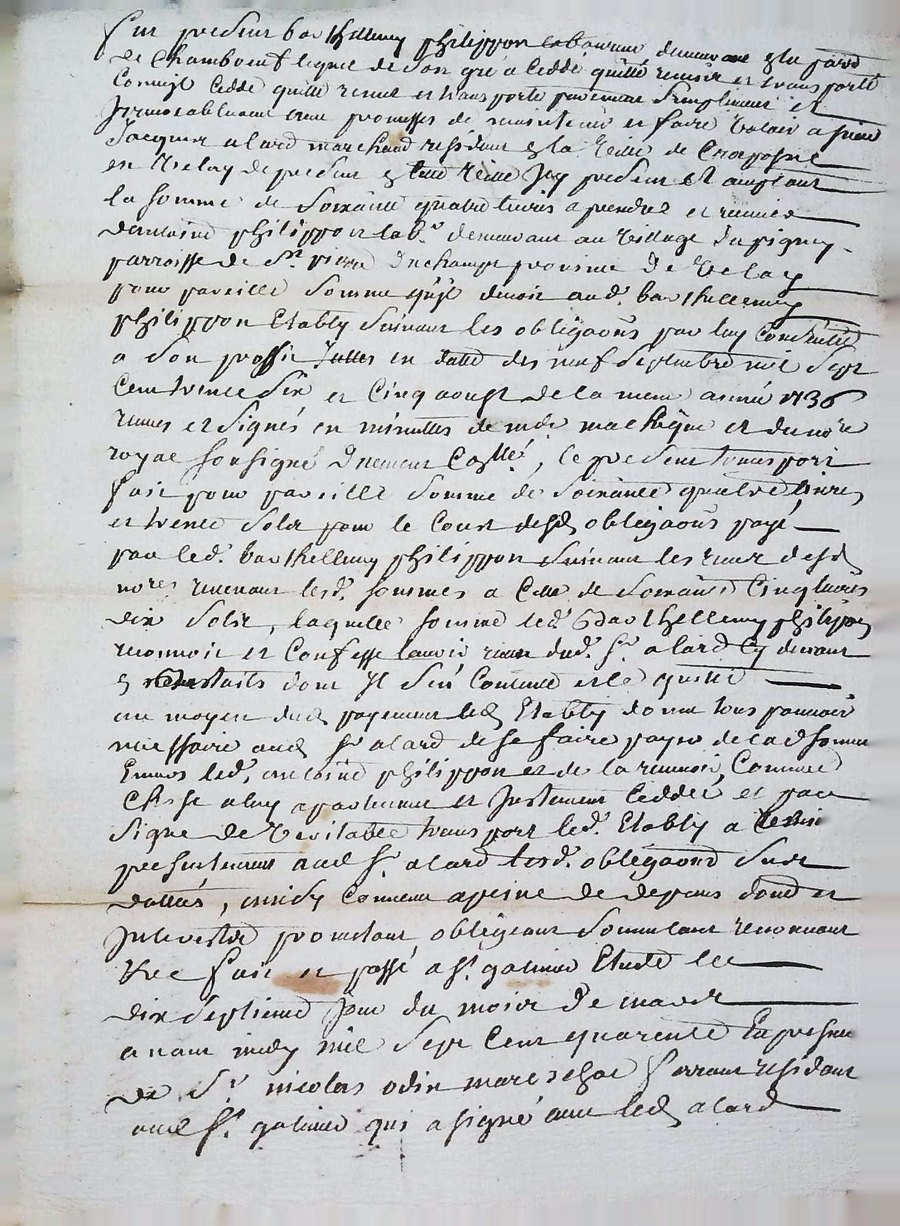 fut present barthellemy philippon laboureur demeurant a la parr
de Chambeuf lequel de son gré a Ceddé quitté remis et transporté
Comme il Cedde quitte remet et transporte purement simplement et
Irrevocablement avec promesses de maintenir et faire valoir a sieur
Jacques alard marchand residant a la ville de Craponne
en velay de present en cette ville Icy present et acceptant
la somme de soixante quatre livres a prendre et recevoir
dantoine philippon lab.r demeurant au village du pigney
parroisse de St pierre Duchamps province de velay
pour pareille somme quil devoit aud. barthellemy
philippon Etably suivant les obligaôns par luy Consenties
a son proffit Icelles en datte des neuf septembre mil sept
Cent trente six et Cinq aoust de la meme année 1736
receues et signés en minuttes de m.e et du no.re
royal soussigné Duement Collé, le present transport
fait pour pareille somme de soixante quatre livres
et trente sols pour le Cout desd. obligaôns payé
par led. barthellemy philippon suivant les receus desd.
no.res revenant lesd. sommes a Celle de soixante Cinq livres
dix sols, laquelle somme led. barthellemy philippon
reconnoit et Confesse lavoir receue dud. s.r alard Cy devant
dont Il sen Contente et le quitte
au moyen dud. payement led. Etably donne tous pouvoir
necessaire aud. s.r alard de se faire payer de lad. somme
Envers led. antoine philippon et de la recevoir, Comme
Chose a luy apartenant et Justement Ceddée et pour
signe de veritable transport led. Etably a remis
presentement aud. s.r alard lesd. obligaôns sus
dattées, ainsy Convenu a peine de depens dom.s et
Interestz promettant obligeant soumettant renonceant
Etc fait et passé a St. galmier Etude le
dix septieme Jour du mois de mars
avant midy mil sept Cent quarente En presence
de S.r nicolas odin mareschal ferrant residant
aud. St. galmier qui a signé avec led. alard